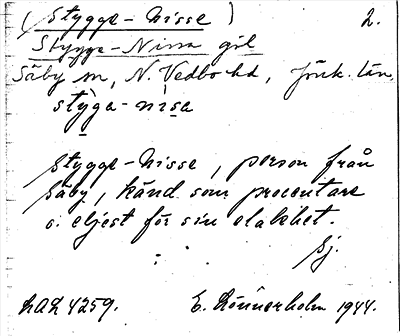 (Stygge-Nisse) 2.
Stygge-Nissa gil
Säby sn, N. Vedbo hd, Jönk. län.
stỳga-nìsa
Stygge-Nisse, person från
Säby, känd som procentare
o. eljest för sin elakhet.
Sj.
LAL 4259. E. Lönnerholm 1944.